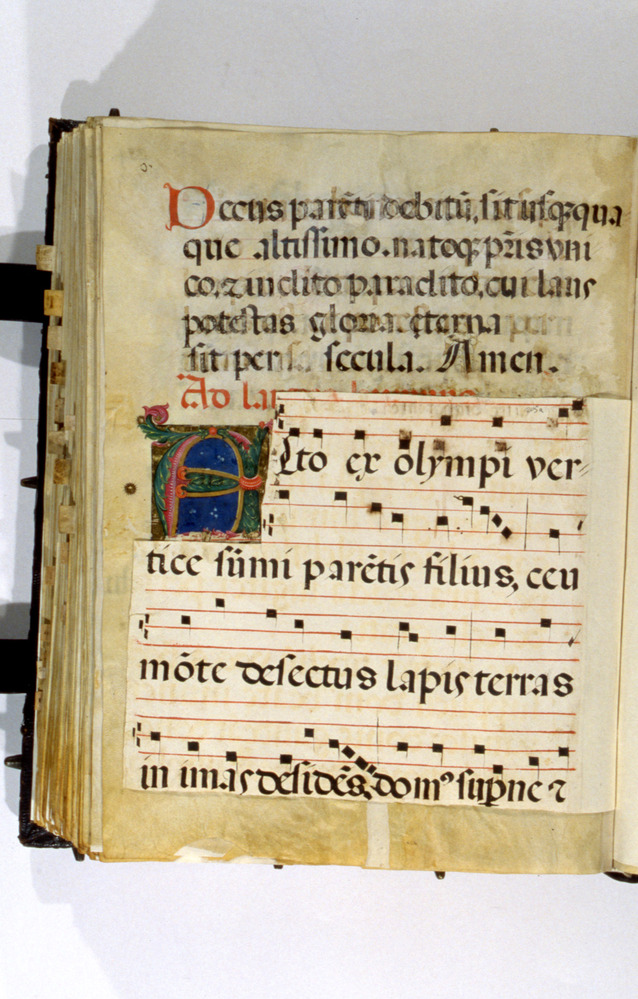 Decus parēti debitū, sit usq; qua
que altissimo. natoq; pr̄is vni
co, ⁊ inclito paraclito, cui laus
potestas gloria. ęterna
sit per secula. Amen.
Ad
Alto ex olympi ver-
tice sūmi parētis filius, ceu
mōte desectus lapis terras
in imas desidēs, domꝰ supne ⁊